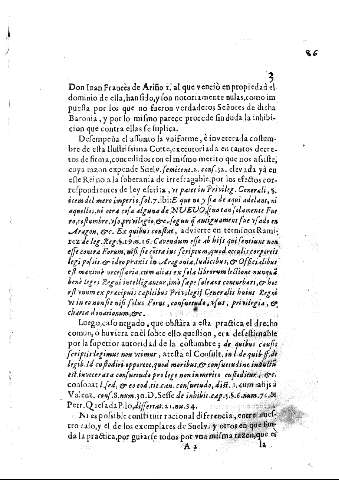 86
3
Don Iuan Francès de Ariño 1. al que venciò en propiedad el
dominio de ella, han sido, y son notoriamente nulas, como im
puesta por los que no fueron verdaderos Señores de dicha
Baronia, y por lo mismo parece procede sin duda la inhibi-
cion que contra ellas se suplica.
Desempeña el assunto la vniforme, è inveterada costum-
bre de esta Ilustrissima Corte, executoriada en tantos decre-
tos de firma, concedidos con el mismo merito que nos assiste,
cuya razon expende Suelv. semicent. 2. cons. 32. elevada yà en
este Reino à la soberania de irrefragable, por los efectos cor-
respondientes de ley escrita, vt patet in Privileg. General. §.
item del mero imperio, fol. 7. ibi: E que no y sia de aqui adelant, ni
aquellos, ni otra cosa alguna de NUEVO, sino tan solament Fue
ro, costumbre, vso, privilegio, &c. segun q antigament fue vsado en
Aragon, &c. Ex quibus constat, advierte en terminos Rami-
rez de leg. Reg. §. 19. n. 16. Cavendum esse ab his qui sentiunt non
esse contra Forum, nisi sic iura ius scriptum, quod oculis corporis
legi possit & ideo peritis in Aragonia, Iudicibus, & Officialibus
est maximè necessaria cum alias ex sola librorum lectione nunquã
benè leges Regni intelligantur, imò sape soleant concurbari, & hoc
est vnum ex praecipuis capitibus Privilegij Generalis huius Regni
vt in eo nonsit nisi solus Forus, consuetudo, vsus, privilegia, &
charta donationum, &c.
Luego, caso negado, que obstára à esta practica el derecho
comun, ò huviera en èl sobre ello question, era desestimable
por la superior autoridad de la costumbre; de quibus causis
scriptis legimus non vtimur, atesta el Consult. in l. de quib. ff. de
legib. Id custodiri oportere, quod moribus, & consuetudine inductũ
est, inveterata consuetudo pro lege non immerito custoditur, & c.
consonat l. sed, & ea eod. tit. can. consuetudo, dist. 1. cum tabijs à
Valenz. cons. 8. num. 30. D. Sesse de inhibit. cap. 3. §. 6. num. 7. &
Petr. Quesada Pilo, dissertat. 21. nu. 54.
Ni es posible constituir racional diferencia, entre nues-
tro caso, y el de los exemplares de Suelv. y otros en que fun-
da la practica, por guiarse todos por vna misma razon, que ni
A 2
la